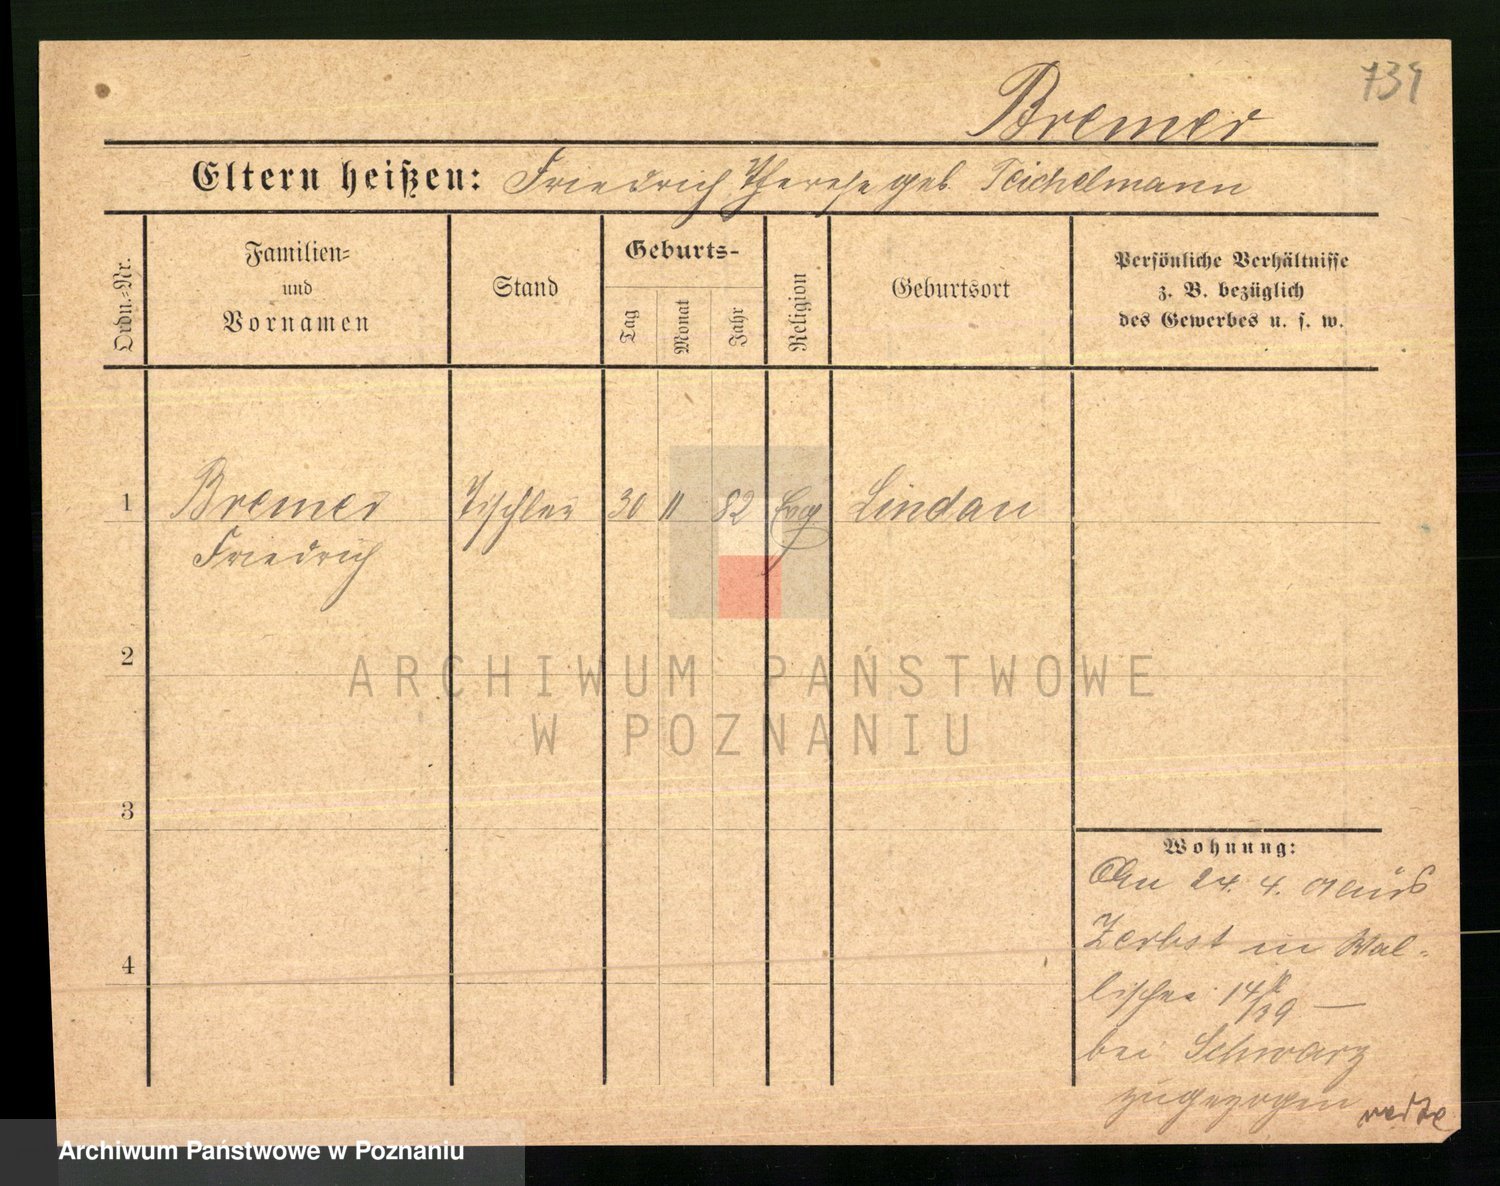 739
Bremer
Eltern heißen: Friedrich, Therese geb. Teichelmann
Ordn.-Nr.
Familien-
und
Vornamen
Stand
Geburts-
Tag
Monat
Jahr
Religion
Geburtsort
Persönliche Verhältnisse
z. B. bezüglich
des Gewerbes u. s. w.
1 Bremer Tischler 30 11 82 Evg Lindau
Friedrich
2
ARCHIWUM PAŃSTWOWE
W POZNANIU
3
4
Wohnung:
24. 4. aus
Zerbst in Wal-
lischei 14/39 —
bei Schwarz
zugezogen
Archiwum Państwowe w Poznaniu